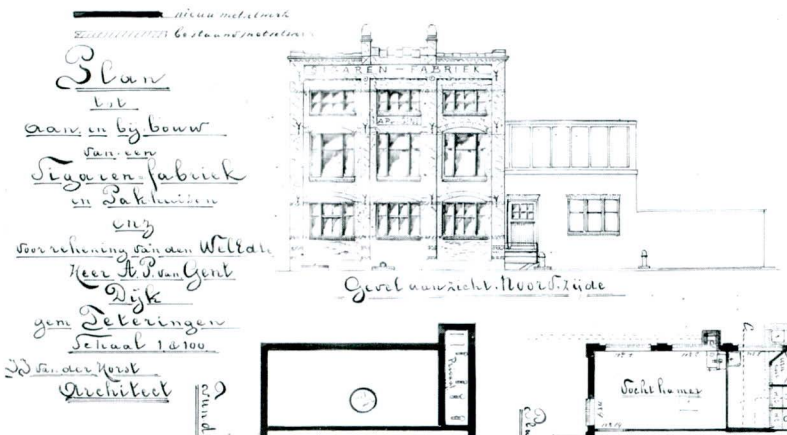 nieuw metselwerk
bestaand metselwerk
Plan
tot
aan en bij bouw
van een
Sigaren-fabriek
en Pakhuizen
enz
voor rekening van den WelEd
Heer A. P. van Gent
Dijk
gem Teteringen
Schaal 1 à 100
van der Horst
Architect
SIGAREN - FABRIEK
Gevel aanzicht. Noord. zijde
Vocht kamer